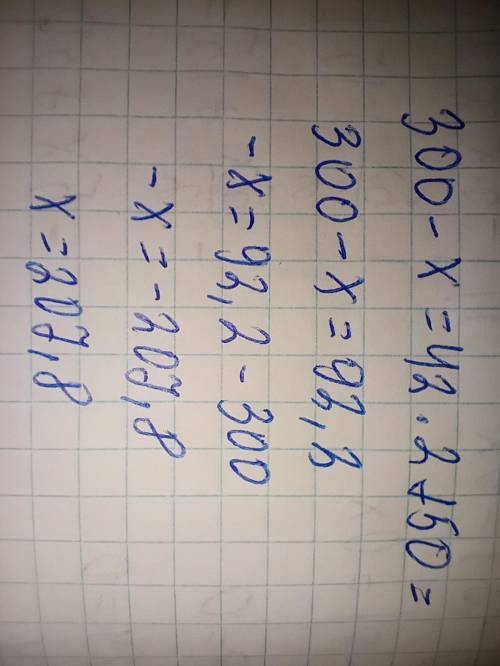 300 - x = 42.2 + 50 =
300 - x = 92,2
- x = 92,2 - 300
- x = - 207,8
x = 207,8